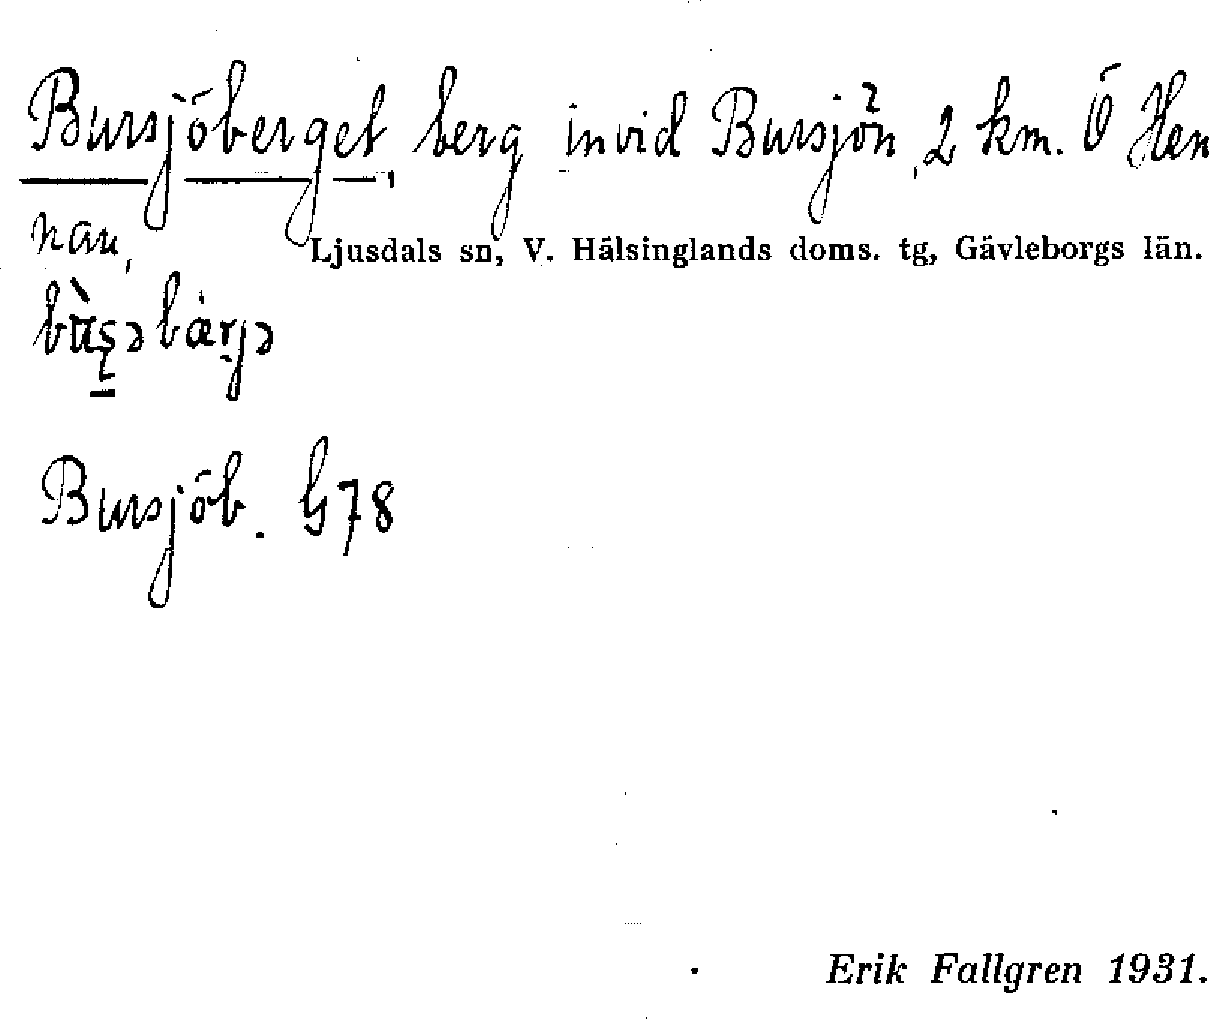 Bursjöberget, berg invid Bursjön², 2 km. Ö Hen
nan,
Ljusdals sn, V. Hälsinglands doms. tg, Gävleborgs län.
Bursjöb. G78
Erik Fallgren 1931.